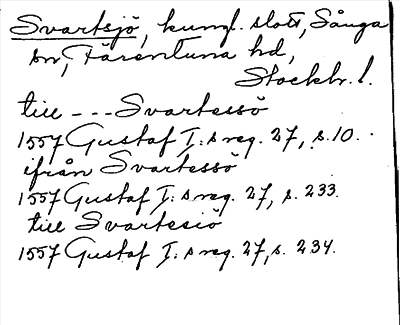 Svartsjö, kungl. slott, Sånga
sn, Färentuna hd,
Stockh. l.
till --- Svartessö
1557 Gustaf I:s reg. 27, s. 10.
ifrån Svartessö
1557 Gustaf I:s reg. 27, s. 233.
till Svartesiö
1557 Gustaf I:s reg. 27, s. 234.